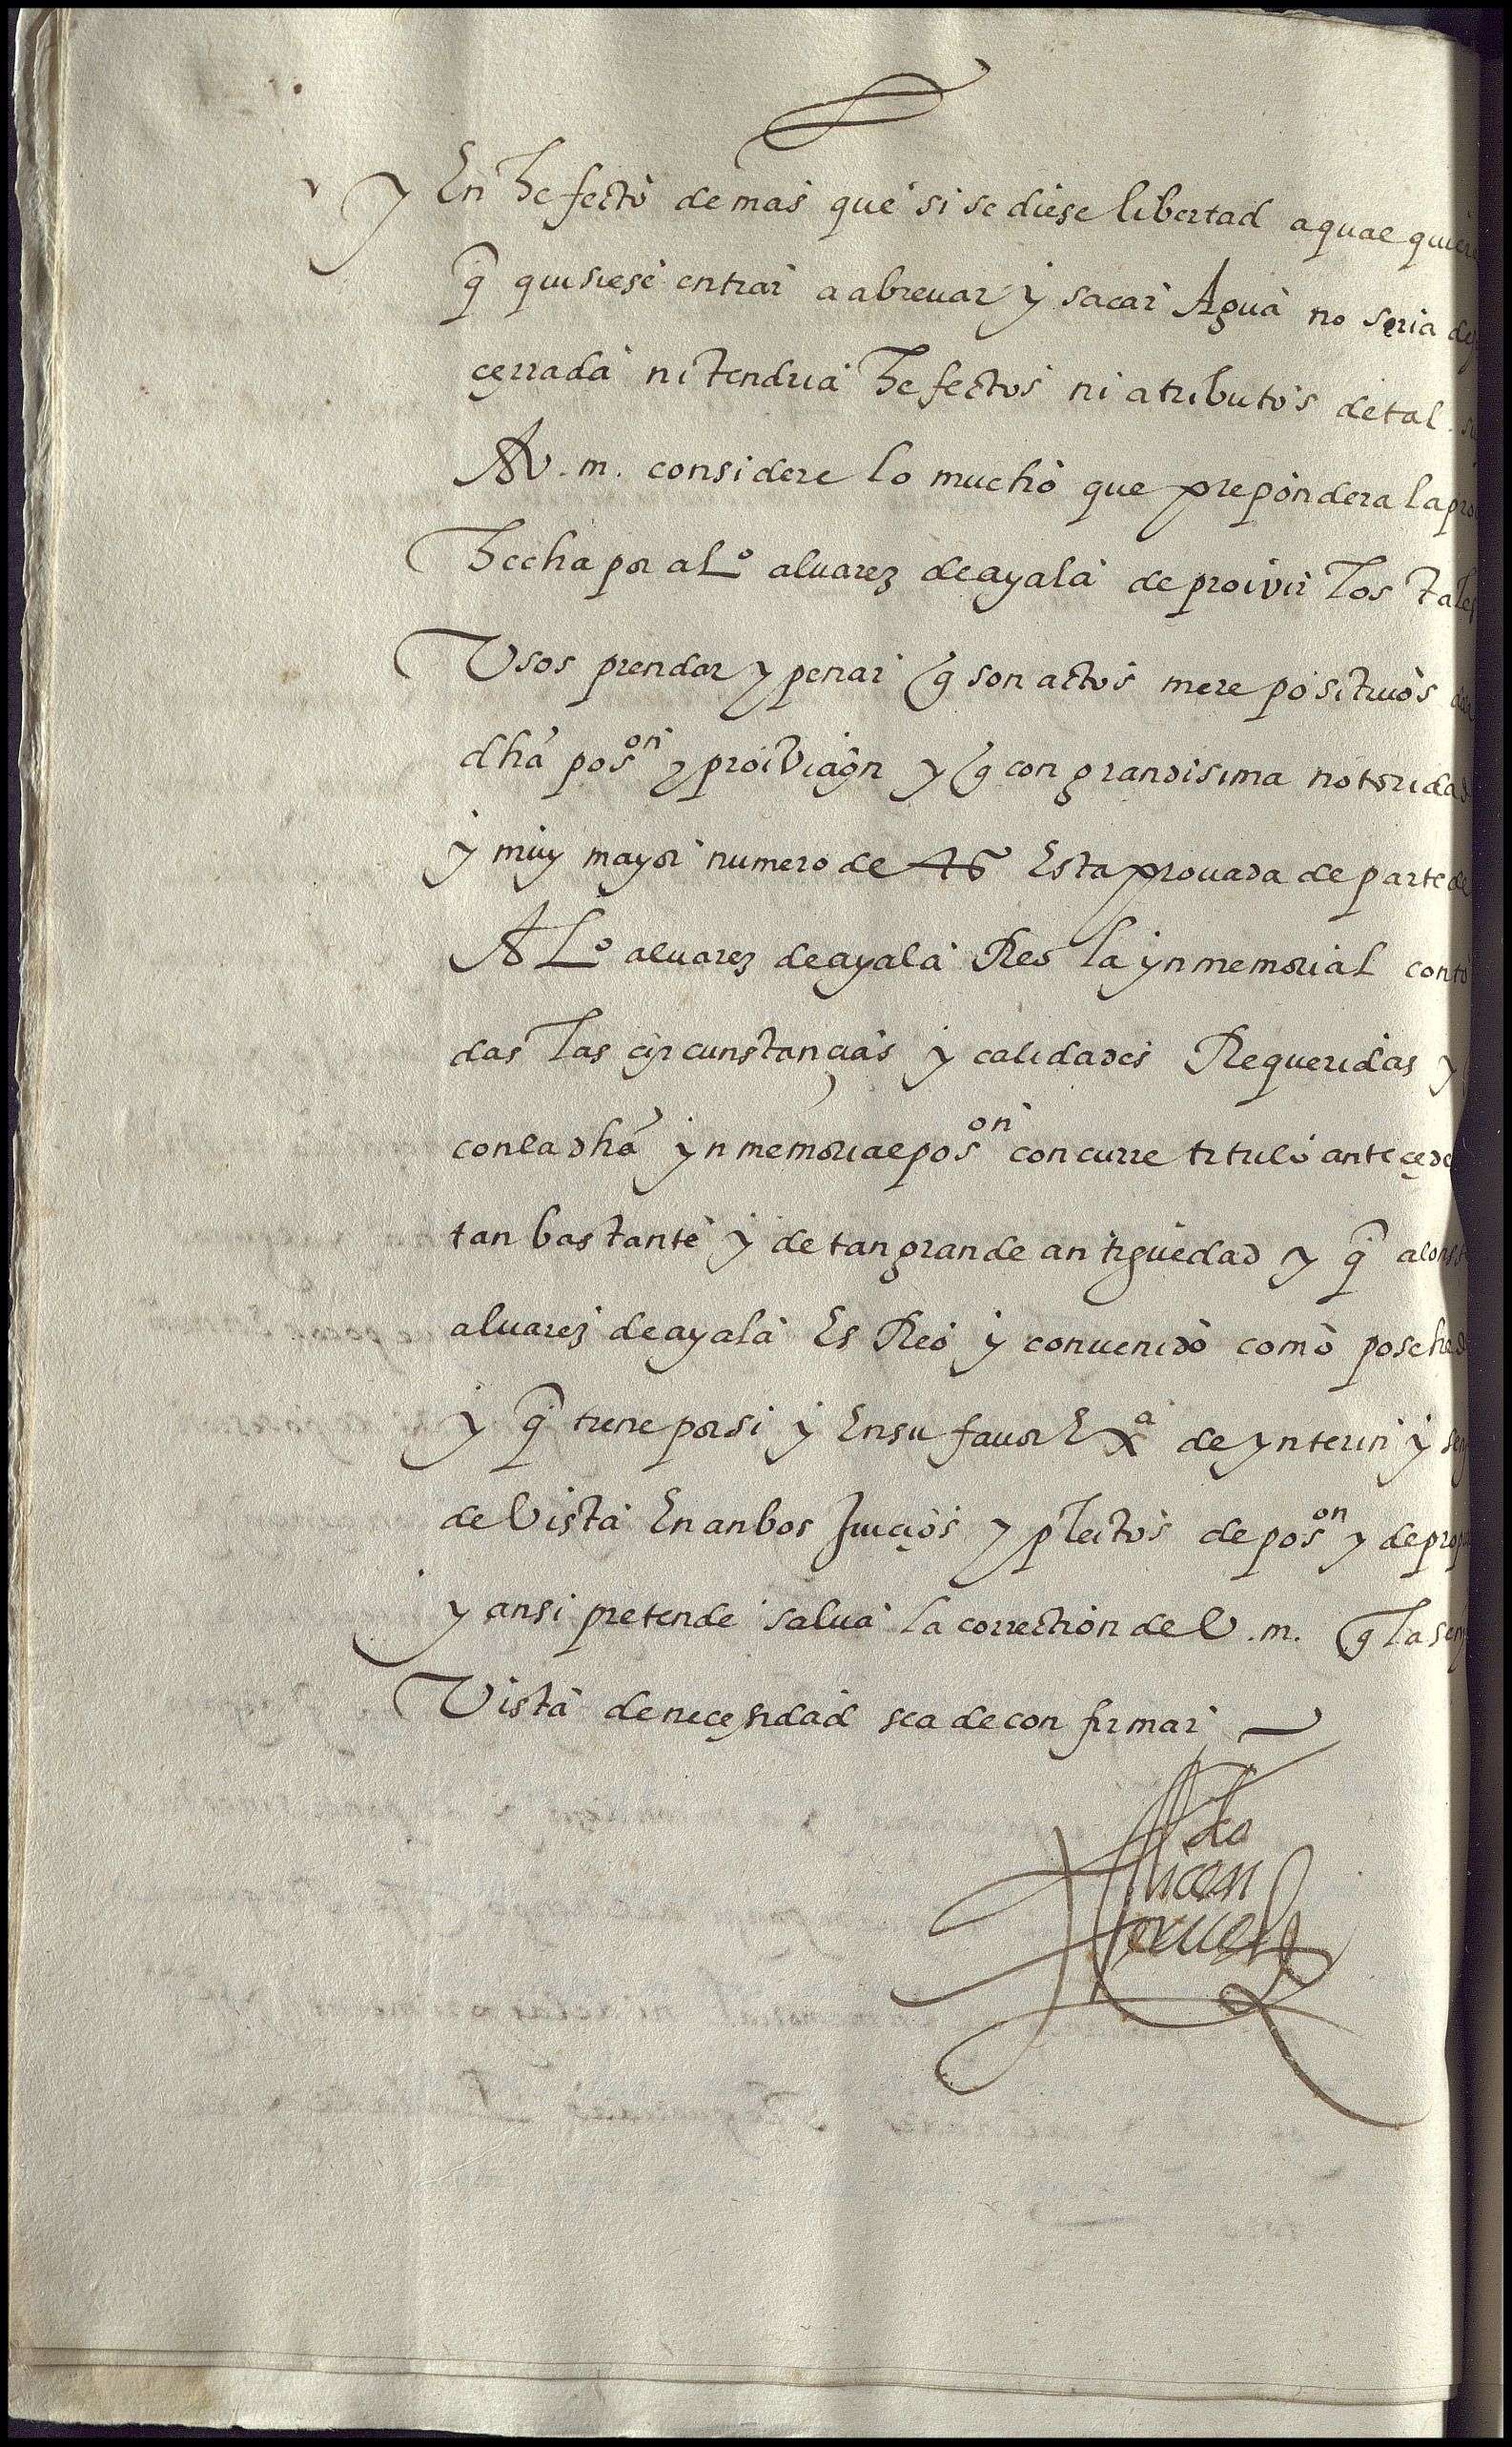 y En hefecto demas que si se diese libertad aqualquiera
q̃ quisiese entrar a abrevar y sacar Agua no seria de
çerrada ni tendria hefectos ni atributos de tal
A V. m. considere lo mucho que prepondera la pro
hecha por a Lº alvarez de ayala de proivir los tales
Usos prendar y penar q̃ son actos mere positivos de
dhã posᵒⁿ y proiviçion y q̃ con grandisima notoridad
y muy mayor numero de 46 Esta provada de parte de
A Lº alvarez de ayala Reo la ynmemorial con to
das las çircunstançias y calidades Requeridas y
con la dhã ynmemorial posᵒⁿ concurre titulo anteçede
tan bastante y de tan grande antigüedad y q̃ alonso
alvarez de ayala Es Reo y convenido como posehed
y q̃ tiene por si y En su favor Exᵃ de ynterin y sen
de Vista En anbos Juiçios y pleitos de posᵒⁿ y de prop
y ansi pretende salva la correction de V. m. q̃ la sen
Vista de neçesidad sea de confirmar
do
licen